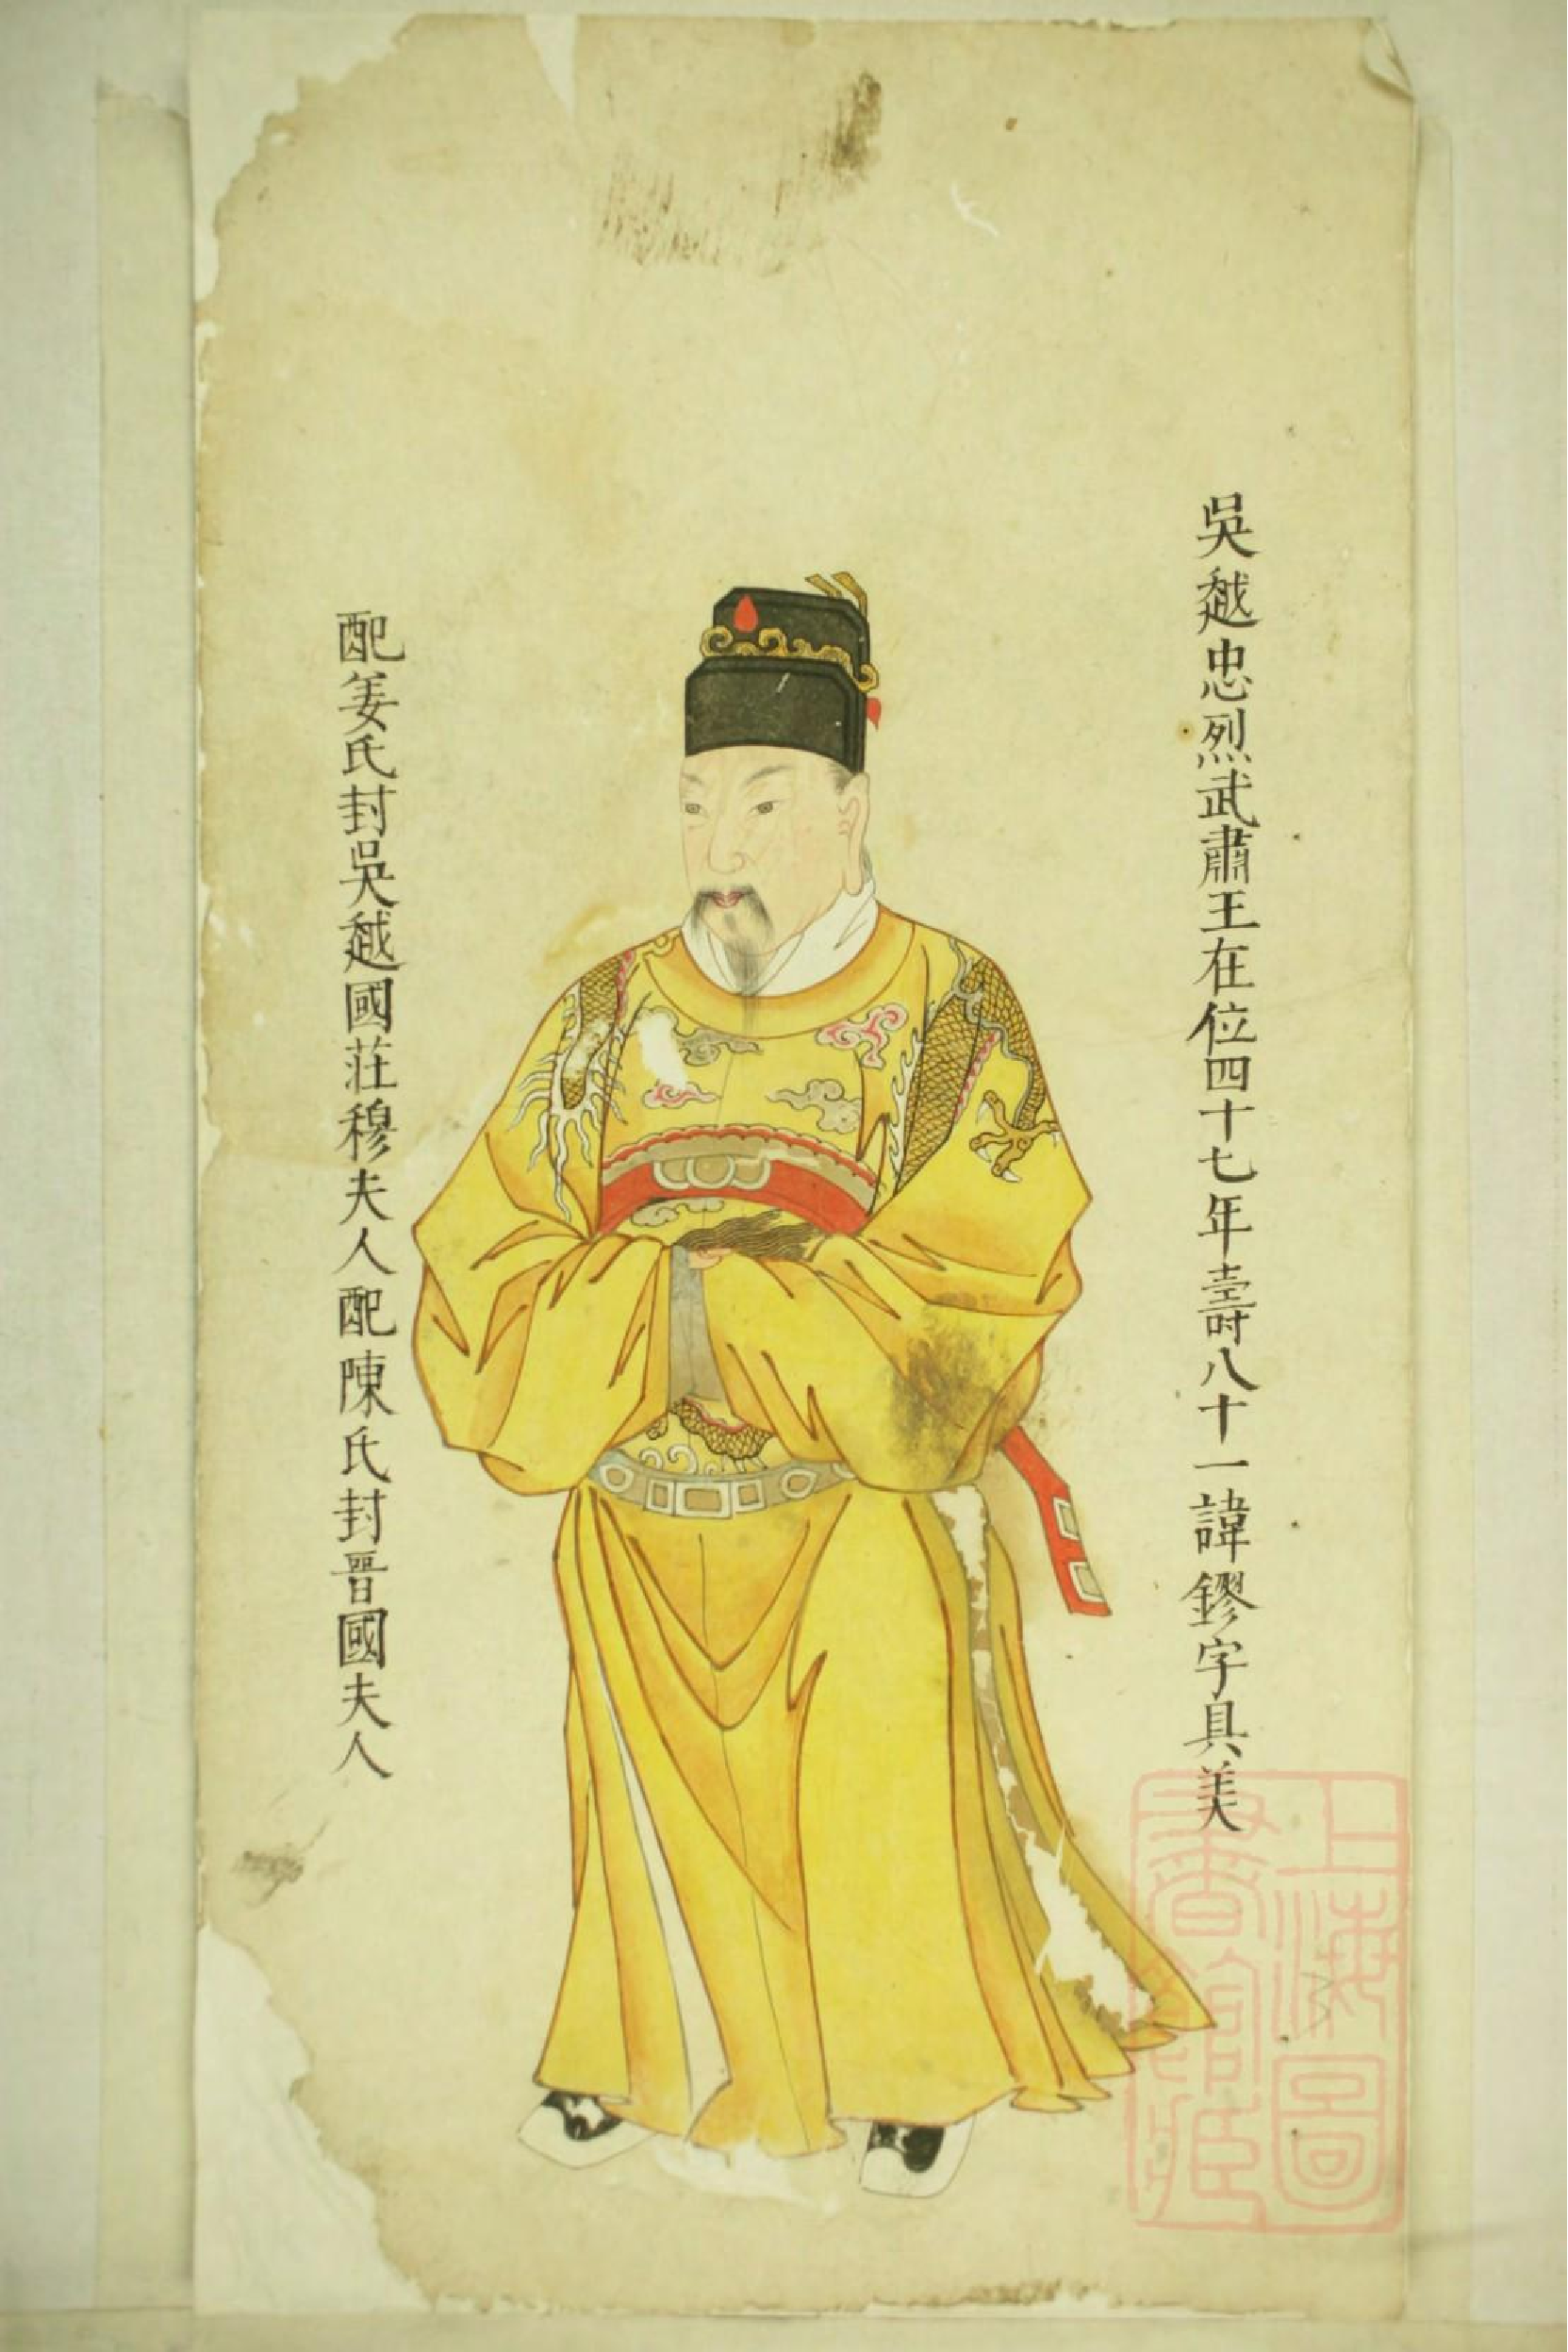 吳越忠烈武肅王在位四十七年壽八十一諱鏐字具美
配姜氏封吳越國莊穆夫人配陳氏封晉國夫人
上海圖
書館藏